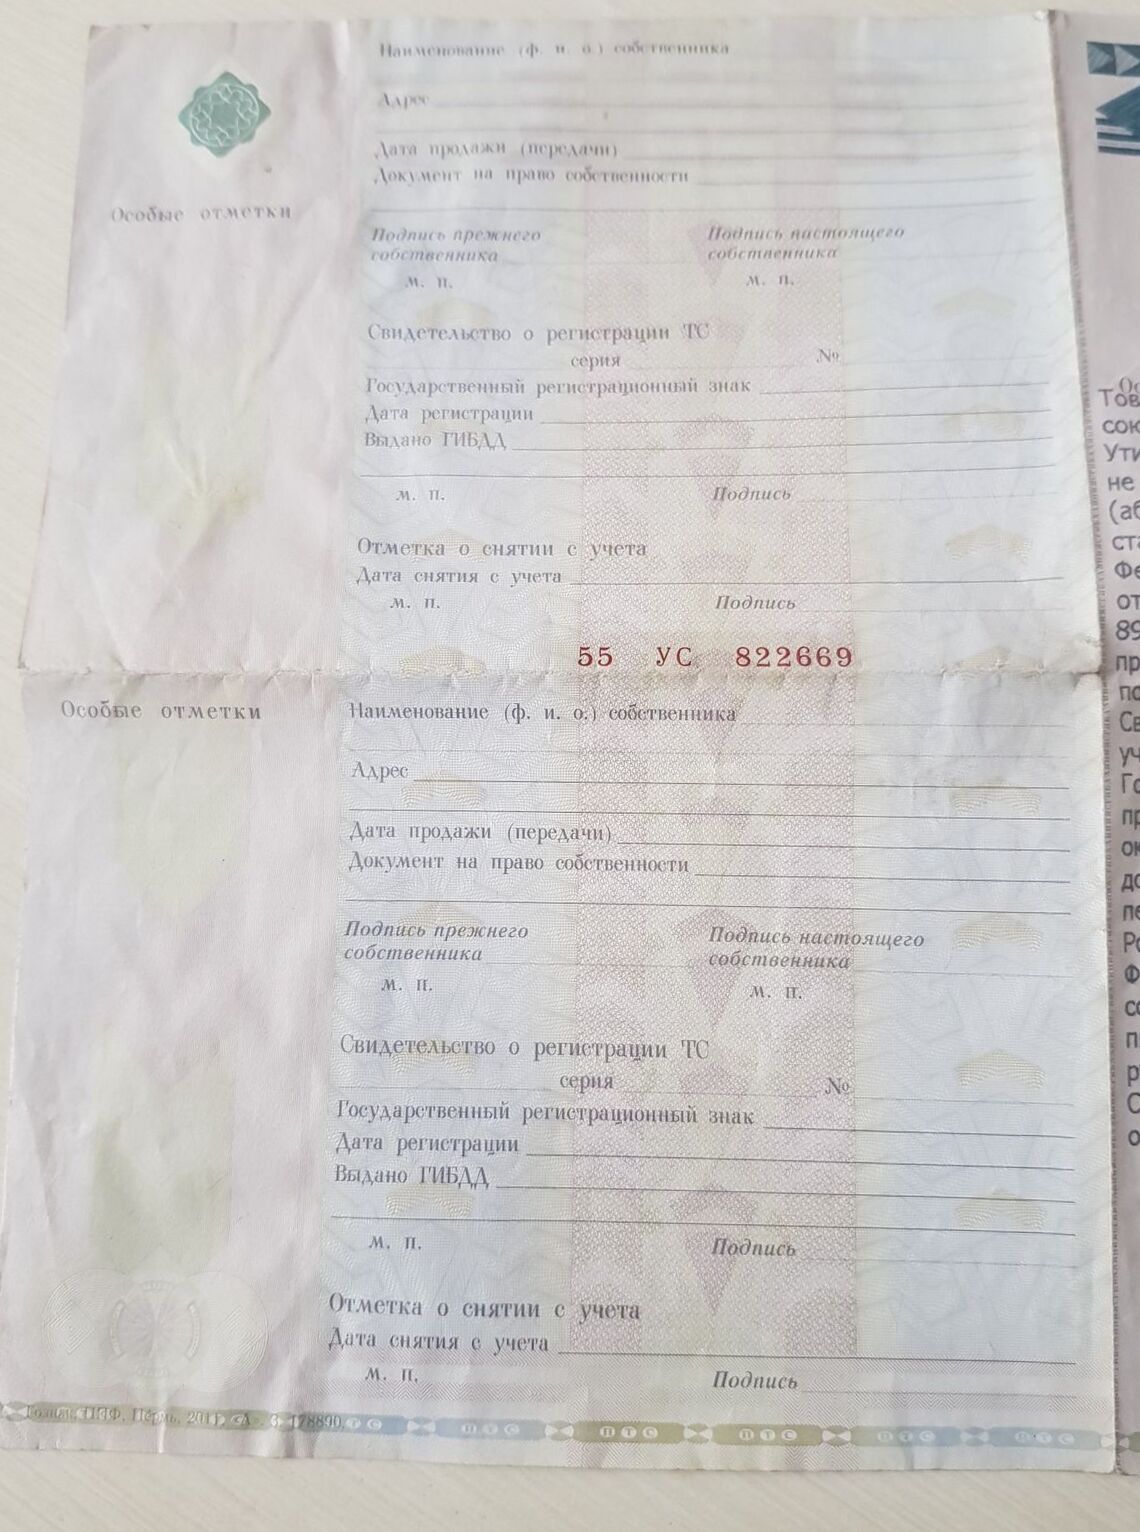 Наименование (ф. и. о.) собственника
Адрес
Дата продажи (передачи)
Документ на право собственности
Особые отметки
Подпись прежнего собственника
Подпись настоящего собственника
м. п.
м. п.
Свидетельство о регистрации ТС
серия №
Государственный регистрационный знак
Дата регистрации
Выдано ГИБДД
м. п. Подпись
Отметка о снятии с учета
Дата снятия с учета
м. п. Подпись
55 УС 822669
Особые отметки
Наименование (ф. и. о.) собственника
Адрес
Дата продажи (передачи)
Документ на право собственности
Подпись прежнего собственника
Подпись настоящего собственника
м. п.
м. п.
Свидетельство о регистрации ТС
серия №
Государственный регистрационный знак
Дата регистрации
Выдано ГИБДД
м. п. Подпись
Отметка о снятии с учета
Дата снятия с учета
м. п. Подпись
Гознак, ППФ, Пермь, 2011, «А». З. 178890.
ПТС ПТС ПТС ПТС ПТС ПТС